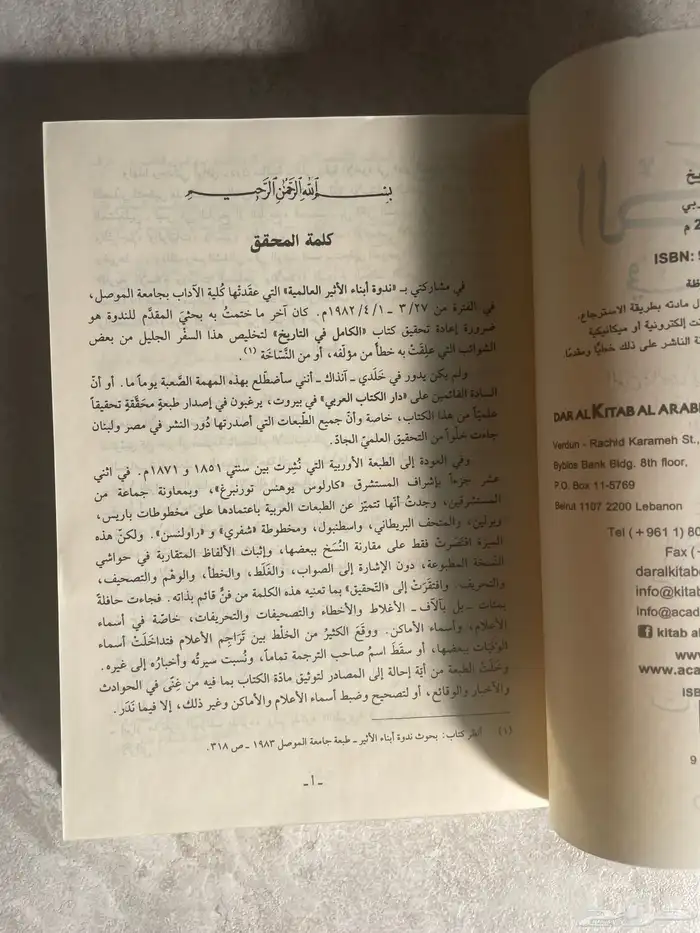 بسم الله الرحمن الرحيم
كلمة المحقق
في مشاركتي بـ «ندوة أبناء الأثير العالمية» التي عقدَتْها كُلية الآداب بجامعة الموصل،
في الفترة من ٣/٢٧ ـ ١٩٨٢/٤/١م. كان آخر ما ختمتُ به بحثيَ المقدَّم للندوة هو
ضرورة إعادة تحقيق كتاب «الكامل في التاريخ» لتخليص هذا السفْر الجليل من بعض
الشوائب التي علِقَتْ به خطأً من مؤلّفه، أو من النَّسَّاخة (١).
ولم يكن يدور في خَلَدي ـ آنذاك ـ أنني سأضطّلع بهذه المهمة الصَّعبة يوماً ما. أو أنّ
السادة القائمين على «دار الكتاب العربي» في بيروت، يرغبون في إصدار طبعةٍ محقَّقةٍ تحقيقاً
علميّاً من هذا الكتاب، خاصة وأنّ جميع الطّبعات التي أصدرتها دُور النشر في مصر ولبنان
جاءت خلْواً من التحقيق العلميّ الجادّ.
وفي العودة إلى الطبعة الأوربية التي نُشِرت بين سنتي ١٨٥١ و ١٨٧١م. في اثني
عشر جزءاً بإشراف المستشرق «كارلوس يوهنس تورنبرغ»، وبمعاونة جماعة من
المستشرقين، وجدتُ أنّها تتميّز عن الطبعات العربية باعتمادها على مخطوطات باريس،
وبرلين، والمتحف البريطاني، واسطنبول، ومخطوطة «شفري» و «راولنسن». ولكنّ هذه
الميزة اقتصَرتْ فقط على مقارنة النُسَخ ببعضها، وإثبات الألفاظ المتقاربة في حواشي
النسخة المطبوعة، دون الإشارة إلى الصواب، والغَلَط، والخطأ، والوهْم والتصحيف،
والتحريف. وافتقَرَتْ إلى «التحقيق» بما تعنيه هذه الكلمة من فنٍّ قائم بذاته. فجاءت حافلةً
بمئات ـ بل بآلاف ـ الأغلاط والأخطاء والتصحيفات والتحريفات، خاصّة في أسماء
الأعلام، وأسماء الأماكن. ووقَعَ الكثيرُ من الخلْط بين تَرَاجِم الأعلام فتداخَلَتْ أسماء
الوفَيات ببعضها، أو سقَطَ اسمُ صاحب الترجمة تماماً، ونُسبت سيرتُه وأخبارُه إلى غيره.
وخلَتْ الطبعة من أيّة إحالة إلى المصادر لتوثيق مادّة الكتاب بما فيه من غِنًى في الحوادث
والأخبار والوقائع، أو لتصحيح وضبط أسماء الأعلام والأماكن وغير ذلك، إلا فيما نَدَر.
(١) أنظر كتاب: بحوث ندوة أبناء الأثير ـ طبعة جامعة الموصل ١٩٨٣ ـ ص ٣١٨.
ـ ١ ـ
ISBN:
مادته بطريقة الاسترجاع،
إلكترونية أو ميكانيكية
الناشر على ذلك خطيًا ومقدمًا.
DAR AL KITAB AL ARABI
Verdun - Rachid Karameh St.,
Byblos Bank Bldg. 8th floor,
P.O. Box 11-5769
Beirut 1107 2200 Lebanon
Tel (+ 961 1) 80
Fax (+
daralkitab
info@kitab
info@acad
kitab al
www
www.aca
ISB
9